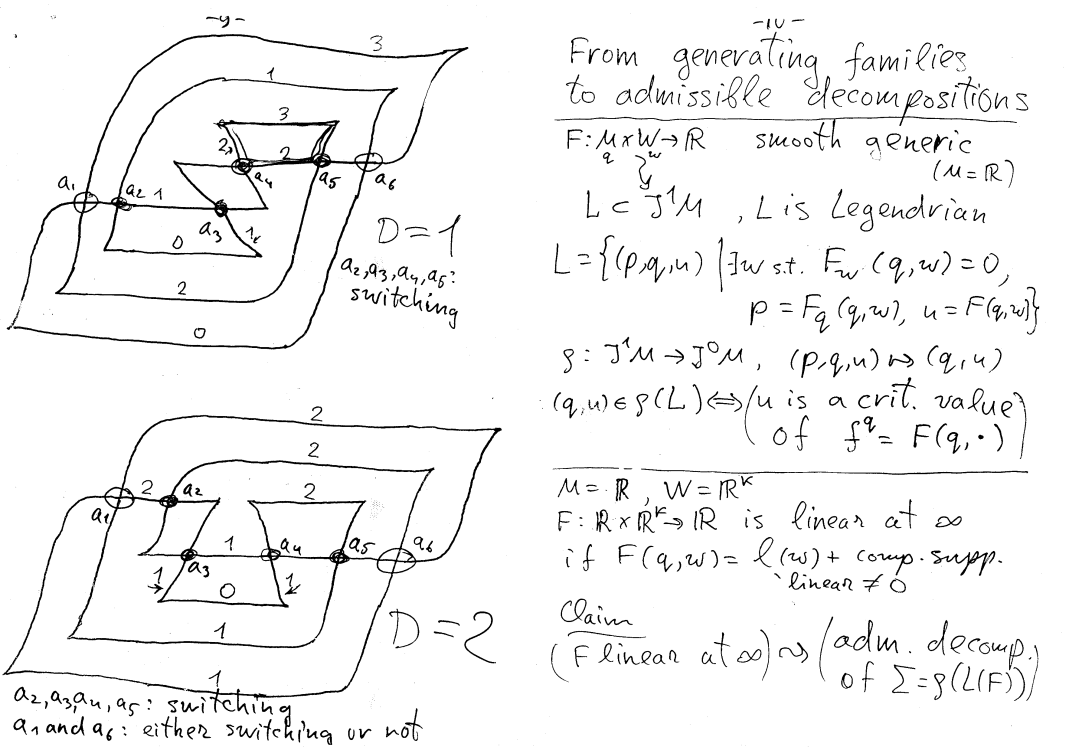 -9-
3
1
3
2
2
a1
a2
1
a4
a5
a6
a3
1
0
D=1
a2,a3,a4,a5:
switching
2
0
2
2
2
2
a2
a1
1
a4
a5
a6
a3
1
1
0
D=2
1
1
a2,a3,a4,a5: switching
a1 and a6: either switching or not
-10-
From generating families
to admissible decompositions
F: M×W→ℝ smooth generic
q w (M=ℝ)
L ⊂ J¹M , L is Legendrian
L={(p,q,u) | ∃w s.t. F_w (q,w)=0,
p = F_q (q,w), u = F(q,w)}
ρ: J¹M → J⁰M, (p,q,u) ↦ (q,u)
(q,u) ∈ ρ(L) ⟺ (u is a crit. value
of f^q = F(q,·))
M = ℝ, W = ℝ^k
F: ℝ×ℝ^k→ℝ is linear at ∞
if F(q,w) = l(w) + comp. supp.
linear ≠ 0
Claim
(F linear at ∞) ⇝ (adm. decomp.
of Σ=ρ(L(F)))